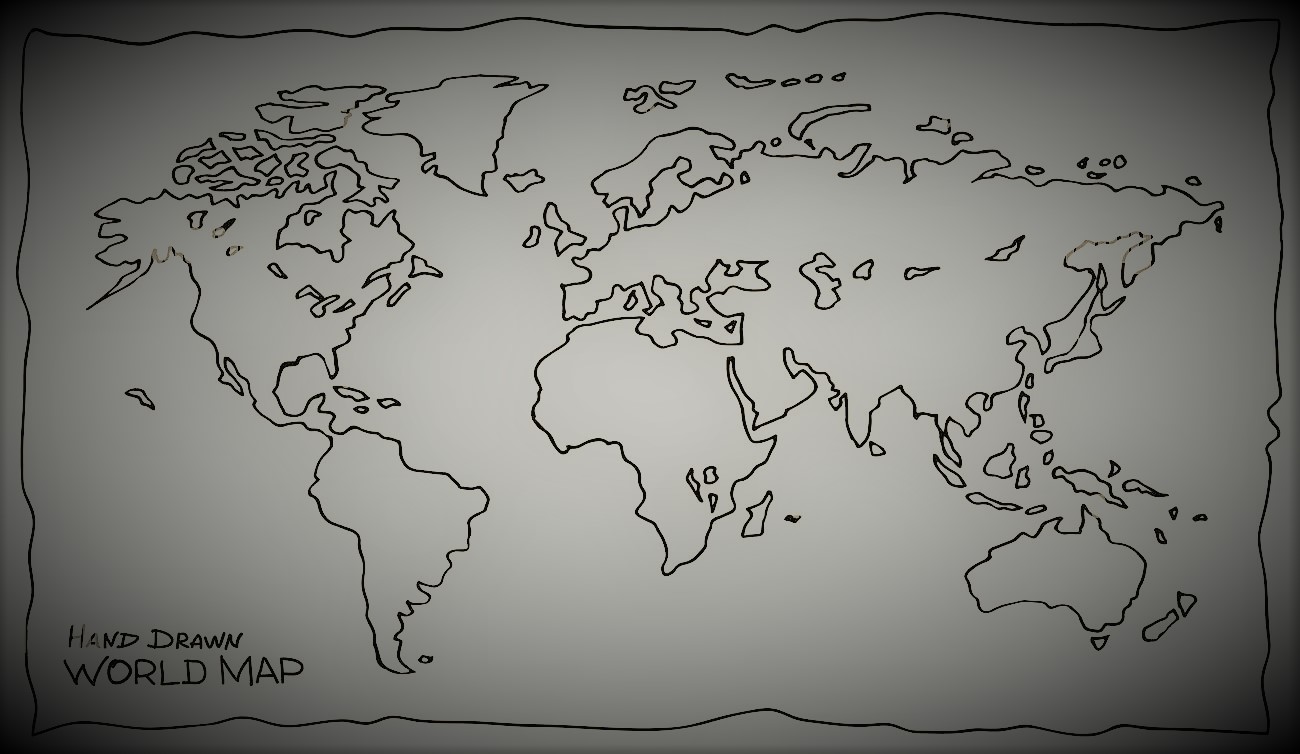 HAND DRAWN
WORLD MAP